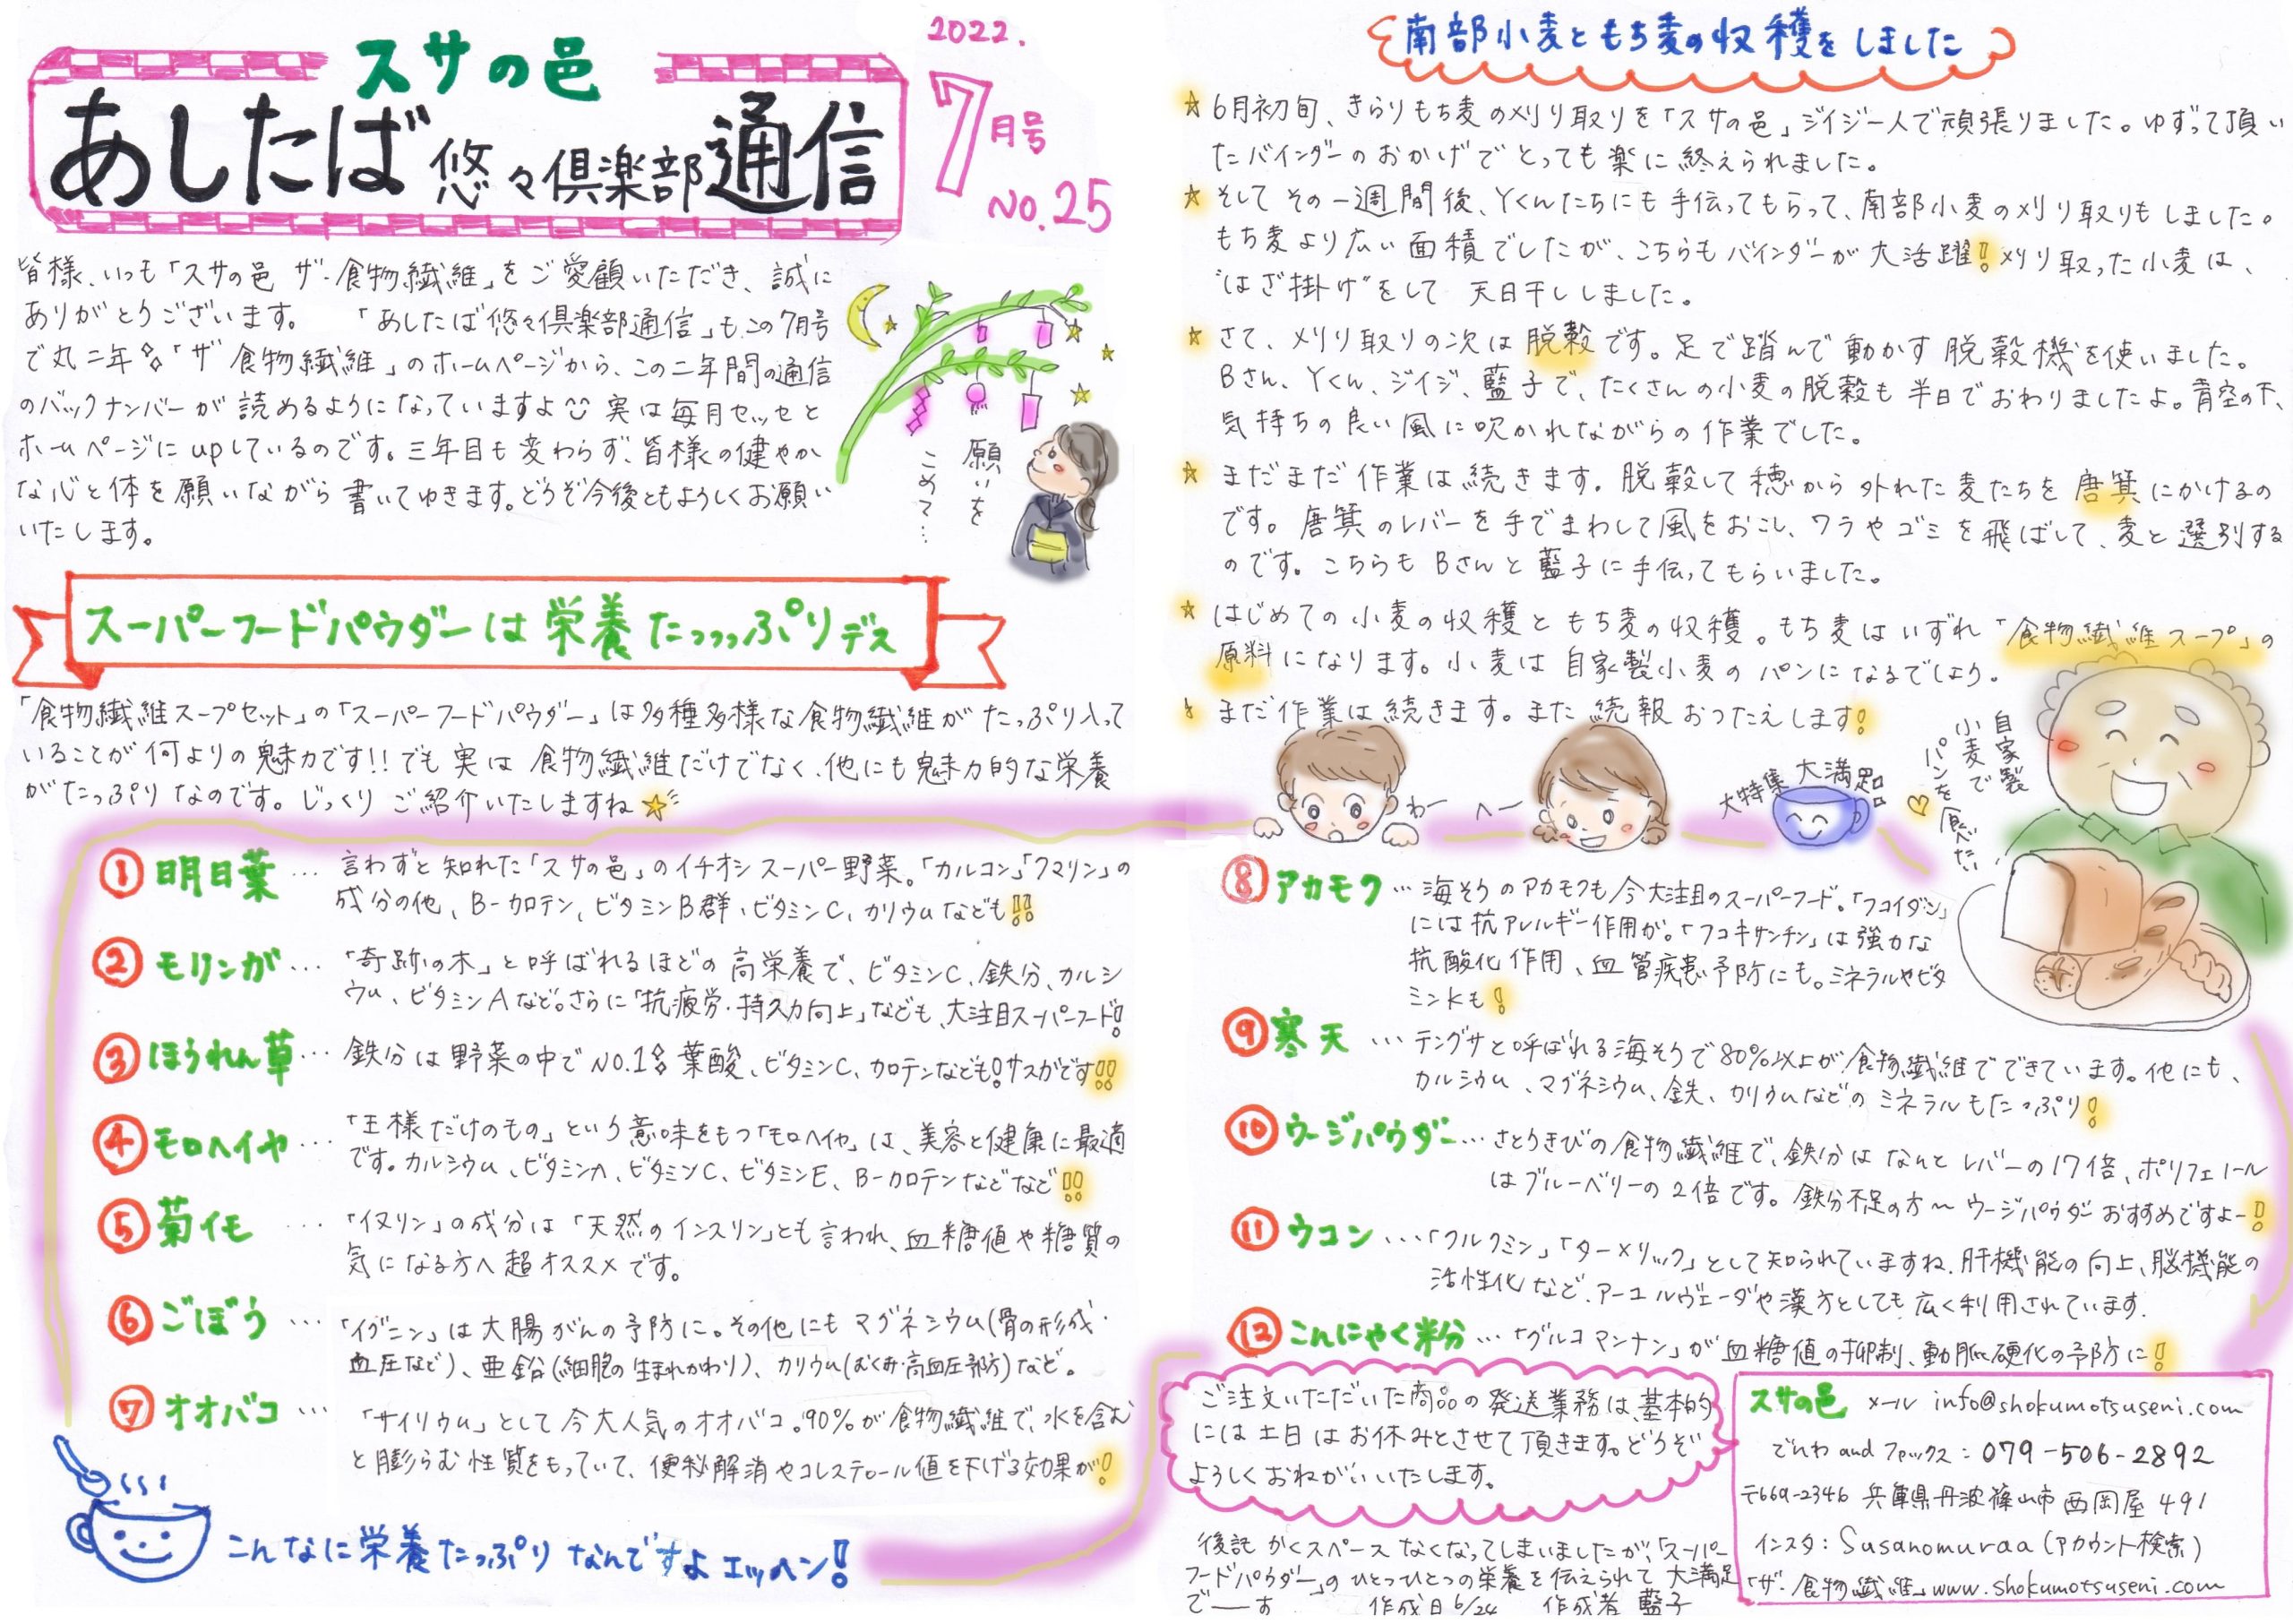 スサの邑
あしたば悠々倶楽部通信
2022.
7月号
No.25
皆様、いつも「スサの邑 ザ・食物繊維」をご愛顧いただき、誠に
ありがとうございます。 「あしたば悠々倶楽部通信」も、この7月号
で丸二年!!「ザ 食物繊維」のホームページから、この二年間の通信
のバックナンバーが読めるようになっていますよ 実は毎月セッセと
ホームページにupしているのです。三年目も変わらず、皆様の健やか
な心と体を願いながら書いてゆきます。どうぞ今後ともよろしくお願い
いたします。
願いを
こめて…
スーパーフードパウダーは栄養たっっっぷりデス
「食物繊維スープセット」の「スーパーフードパウダー」は多種多様な食物繊維がたっぷり入って
いることが何よりの魅力です!!でも実は食物繊維だけでなく、他にも魅力的な栄養
がたっぷりなのです。じっくりご紹介いたしますね☆
①明日葉…言わずと知れた「スサの邑」のイチオシスーパー野菜。「カルコン」「クマリン」の
成分の他、B-カロテン、ビタミンB群、ビタミンC、カリウムなども!!
②モリンガ…「奇跡の木」と呼ばれるほどの高栄養で、ビタミンC、鉄分、カルシ
ウム、ビタミンAなど。さらに「抗疲労・持久力向上」なども、大注目スーパーフード!
③ほうれん草…鉄分は野菜の中でNO.1!! 葉酸、ビタミンC、カロテンなども!サスガです!!
④モロヘイヤ…「王様だけのもの」という意味をもつ「モロヘイヤ」は、美容と健康に最適
です。カルシウム、ビタミンA、ビタミンC、ビタミンE、B-カロテンなどなど!!
⑤菊イモ…「イヌリン」の成分は「天然のインスリン」とも言われ、血糖値や糖質の
気になる方へ超オススメです。
⑥ごぼう…「イグニン」は大腸がんの予防に。その他にもマグネシウム(骨の形成・
血圧など)、亜鉛(細胞の生まれかわり)、カリウム(むくみ・高血圧予防)など。
⑦オオバコ…「サイリウム」として今大人気のオオバコ。90%が食物繊維で、水を含む
と膨らむ性質をもっていて、便秘解消やコレステロール値を下げる効果が!
こんなに栄養たっぷりなんですよエッヘン!
南部小麦ともち麦の収穫をしました
☆6月初旬、きらりもち麦の刈り取りを「スサの邑」ジイジ一人で頑張りました。ゆずって頂い
たバインダーのおかげでとっても楽に終えられました。
☆そしてその一週間後、Yくんたちにも手伝ってもらって、南部小麦の刈り取りもしました。
もち麦より広い面積でしたが、こちらもバインダーが大活躍!刈り取った小麦は、
“はざ掛け”をして天日干ししました。
☆さて、刈り取りの次は脱穀です。足で踏んで動かす脱穀機を使いました。
Bさん、Yくん、ジイジ、藍子で、たくさんの小麦の脱穀も半日でおわりましたよ。青空の下、
気持ちの良い風に吹かれながらの作業でした。
☆まだまだ作業は続きます。脱穀して穂から外れた麦たちを唐箕にかけるの
です。唐箕のレバーを手でまわして風をおこし、ワラやゴミを飛ばして、麦と選別する
のです。こちらもBさんと藍子に手伝ってもらいました。
☆はじめての小麦の収穫ともち麦の収穫。もち麦はいずれ「食物繊維スープ」の
原料になります。小麦は自家製小麦のパンになるでしょう。
☆まだ作業は続きます。また続報おつたえします!
わー
へー
大特集
大満足!!
自家製
小麦で
パンを食べたい
⑧アカモク…海そうのアカモクも今大注目のスーパーフード。「フコイダン」
には抗アレルギー作用が。「フコキサンチン」は強力な
抗酸化作用、血管疾患予防にも。ミネラルやビタ
ミンKも!
⑨寒天…テングサと呼ばれる海そうで80%以上が食物繊維でできています。他にも、
カルシウム、マグネシウム、鉄、カリウムなどのミネラルもたっぷり!
⑩ウージパウダー…さとうきびの食物繊維で、鉄分はなんとレバーの17倍、ポリフェノール
はブルーベリーの2倍です。鉄分不足の方〜ウージパウダーおすすめですよー!
⑪ウコン…「クルクミン」「ターメリック」として知られていますね。肝機能の向上、脳機能の
活性化など、アーユルヴェーダや漢方としても広く利用されています。
⑫こんにゃく粉…「グルコマンナン」が血糖値の抑制、動脈硬化の予防に!
ご注文いただいた商品の発送業務は、基本的
には土日はお休みとさせて頂きます。どうぞ
よろしくおねがいいたします。
後記 かくスペースなくなってしまいましたが、「スーパー
フードパウダー」のひとつひとつの栄養を伝えられて大満足
でーす 作成日6/24 作成者 藍子
スサの邑 メール info@shokumotsuseni.com
でんわ and ファックス:079-506-2892
〒669-2346 兵庫県丹波篠山市西岡屋491
インスタ:Susanomuraa(アカウント検索)
「ザ・食物繊維」www.shokumotsuseni.com